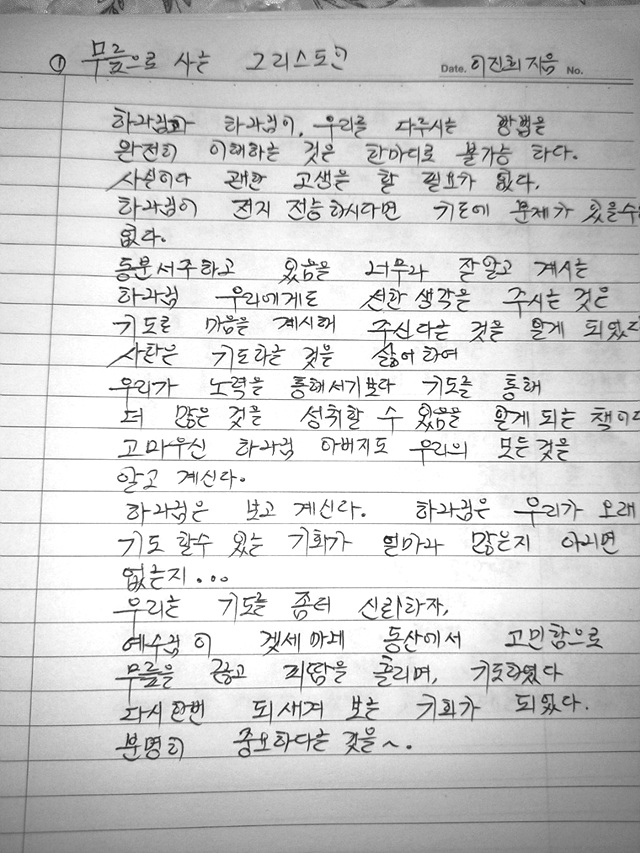 ① 무릎으로 사는 그리스도인 Date. 이진희 지음 No.
하나님과 하나님이, 우리를 다루시는 방법을
완전히 이해하는 것은 한마디로 불가능 하다.
사실이다 괜한 고생을 할 필요가 없다.
하나님이 전지 전능하시다면 기도에 문제가 있을수
없다.
동분서주하고 있음을 너무나 잘알고 계시는
하나님 우리에게도 선한 생각을 주시는 것은
기도로 마음을 계시해 주신다는 것을 알게 되었다
사탄은 기도하는 것을 싫어 하여
우리가 노력을 통해서기보다 기도를 통해
더 많은 것을 성취할 수 있음을 알게 되는 책이다
고마우신 하나님 아버지도 우리의 모든것을
알고 계신다.
하나님은 보고 계신다. 하나님은 우리가 오래
기도 할수 있는 기회가 얼마나 많은지 아니면
없는지...
우리는 기도를 좀더 신뢰하자.
예수님이 겟세마네 동산에서 고민함으로
무릎을 꿇고 피땀을 흘리며, 기도하였다
다시한번 되새겨 보는 기회가 되었다.
분명히 중요하다는 것을~.